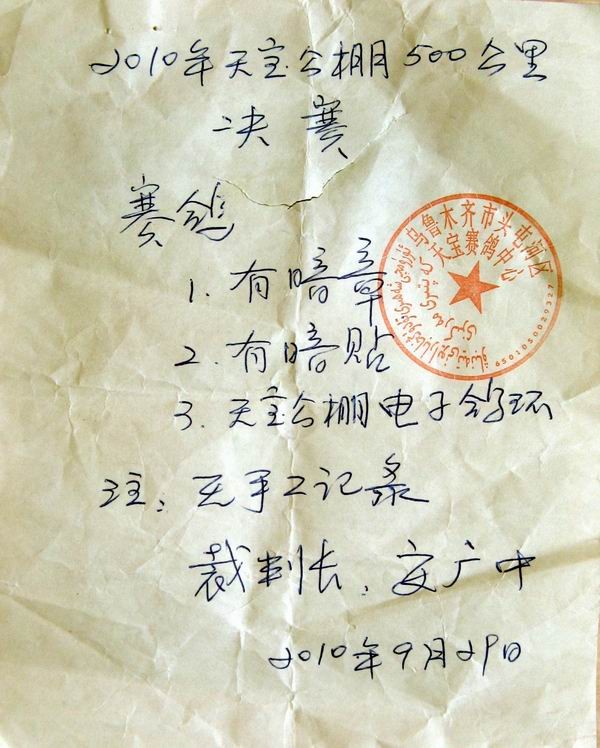 2010年天宝公棚500公里
决赛
赛鸽
1. 有暗章
2. 有暗贴
3. 天宝公棚电子鸽环
注：无手工记条
裁判长：安广中
2010年9月29日
乌鲁木齐市头屯河区
天宝赛鸽中心
6501050029327